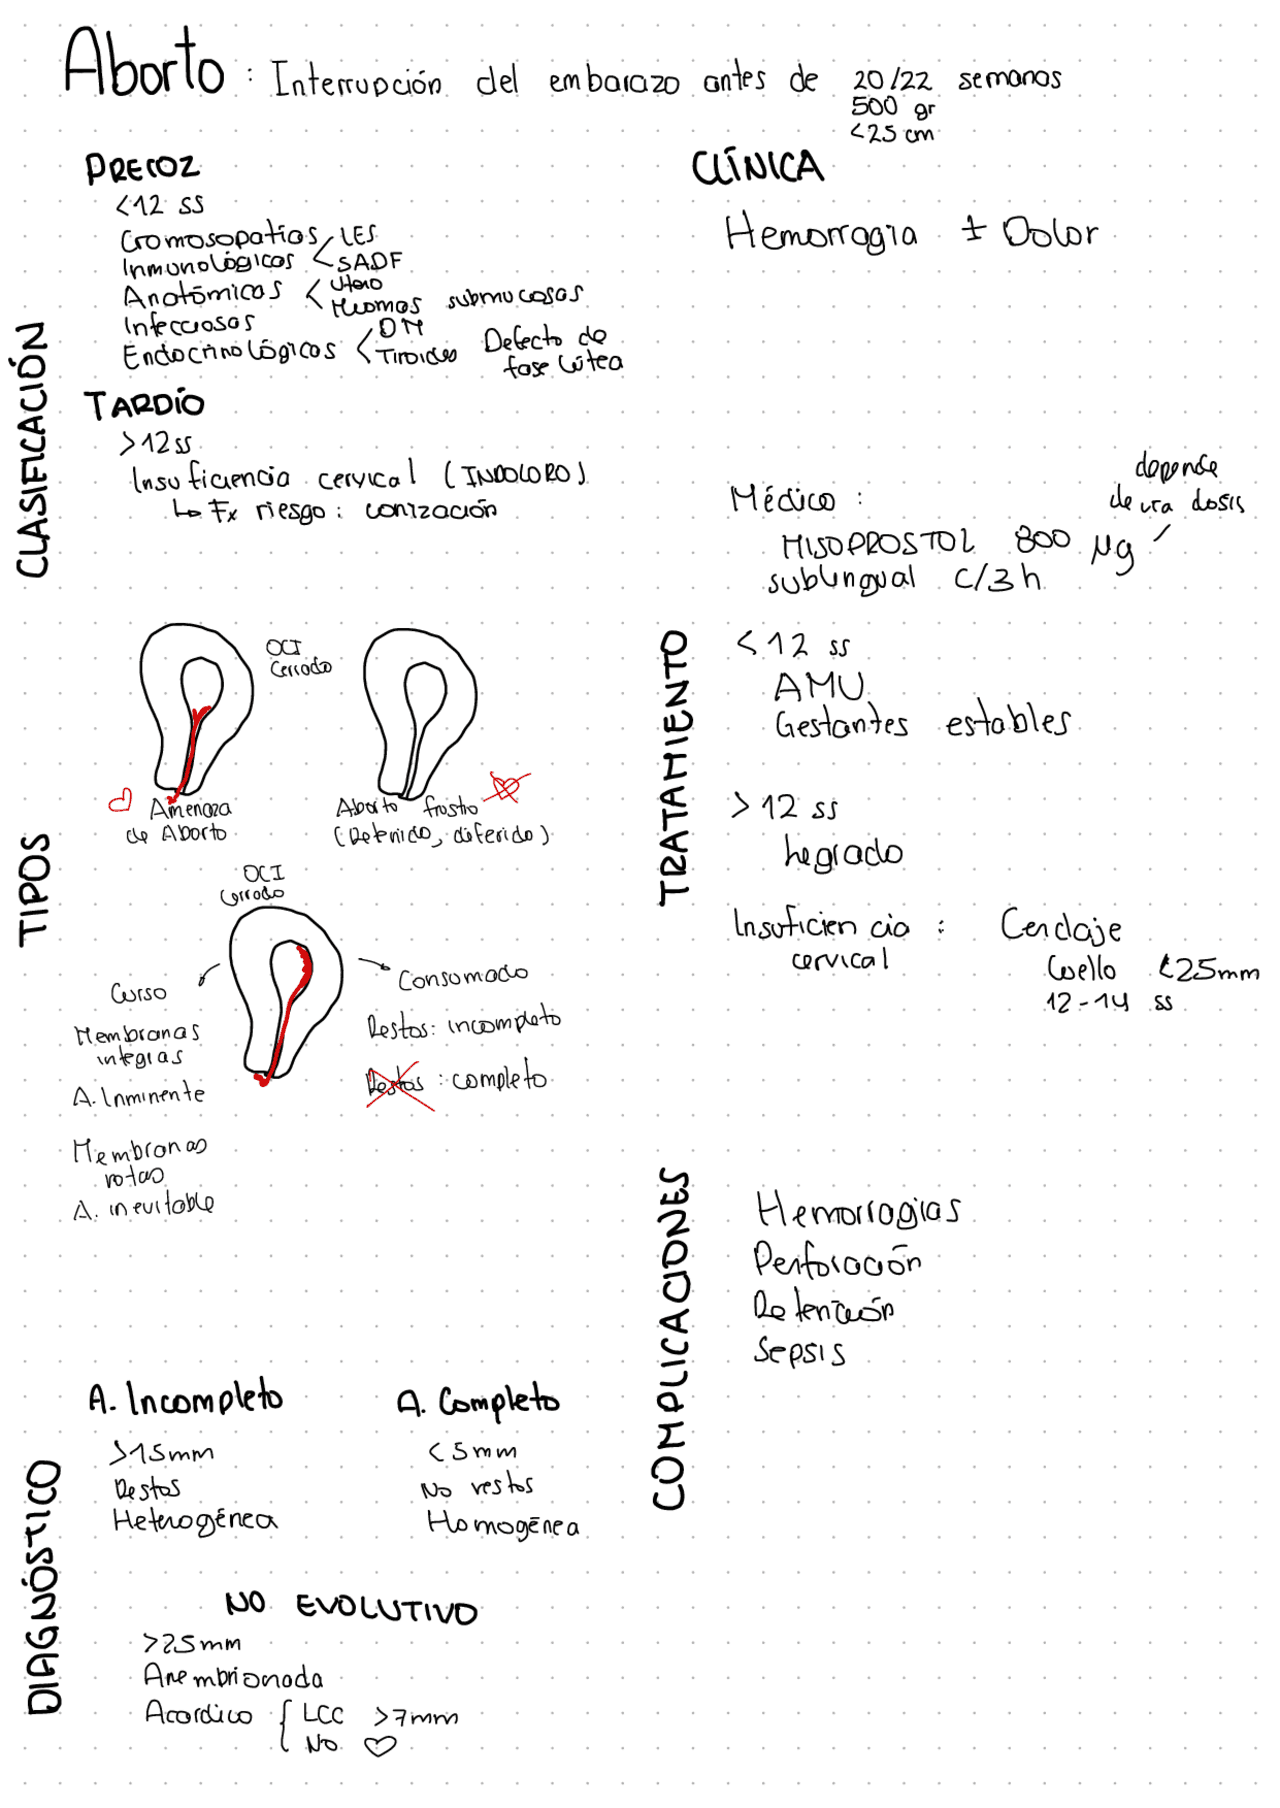 Aborto : Interrupción del embarazo antes de 20/22 semanas
500 gr
<25 cm
CLASIFICACIÓN
PRECOZ
<12 ss
Cromosopatías
Inmunológicos < LES
SADF
Anatómicas < Utero
Miomas submucosas
Infecciosas
Endocrinológicos < DM
Tiroides
Defecto de
fase lútea
TARDÍO
>12ss
Insuficiencia cervical (INDOLORO)
↳ Fx riesgo : conización
TIPOS
OCI
Cerrado
Amenaza
de Aborto
Aborto frustro
(Retenido, diferido)
OCI
Cerrado
Curso
Membranas
integras
A. Inminente
Membranas
rotas
A. inevitable
Consumado
Restos: incompleto
Restos : completo
DIAGNÓSTICO
A. Incompleto
>15mm
Restos
Heterogénea
A. Completo
<5mm
No restos
Homogénea
NO EVOLUTIVO
>25mm
Anembrionada
Acardico { LCC >7mm
No ♡
CLÍNICA
Hemorragia ± Dolor
TRATAMIENTO
Médico :
MISOPROSTOL 800 µg
sublingual c/3h
depende
de una dosis
<12 ss
AMU
Gestantes estables
>12 ss
legrado
Insuficiencia : Cerclaje
cervical
Cuello <25mm
12-14 ss
COMPLICACIONES
Hemorragias
Perforación
Retención
Sepsis